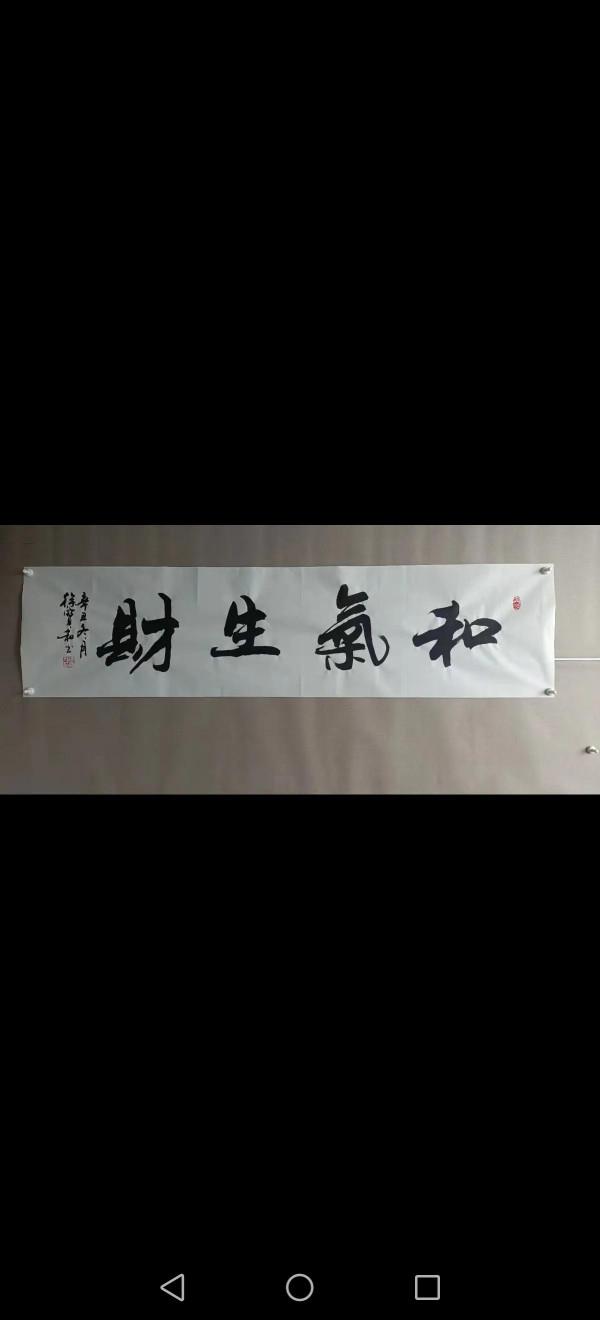 和氣生財
辛丑冬月
徐寶和书